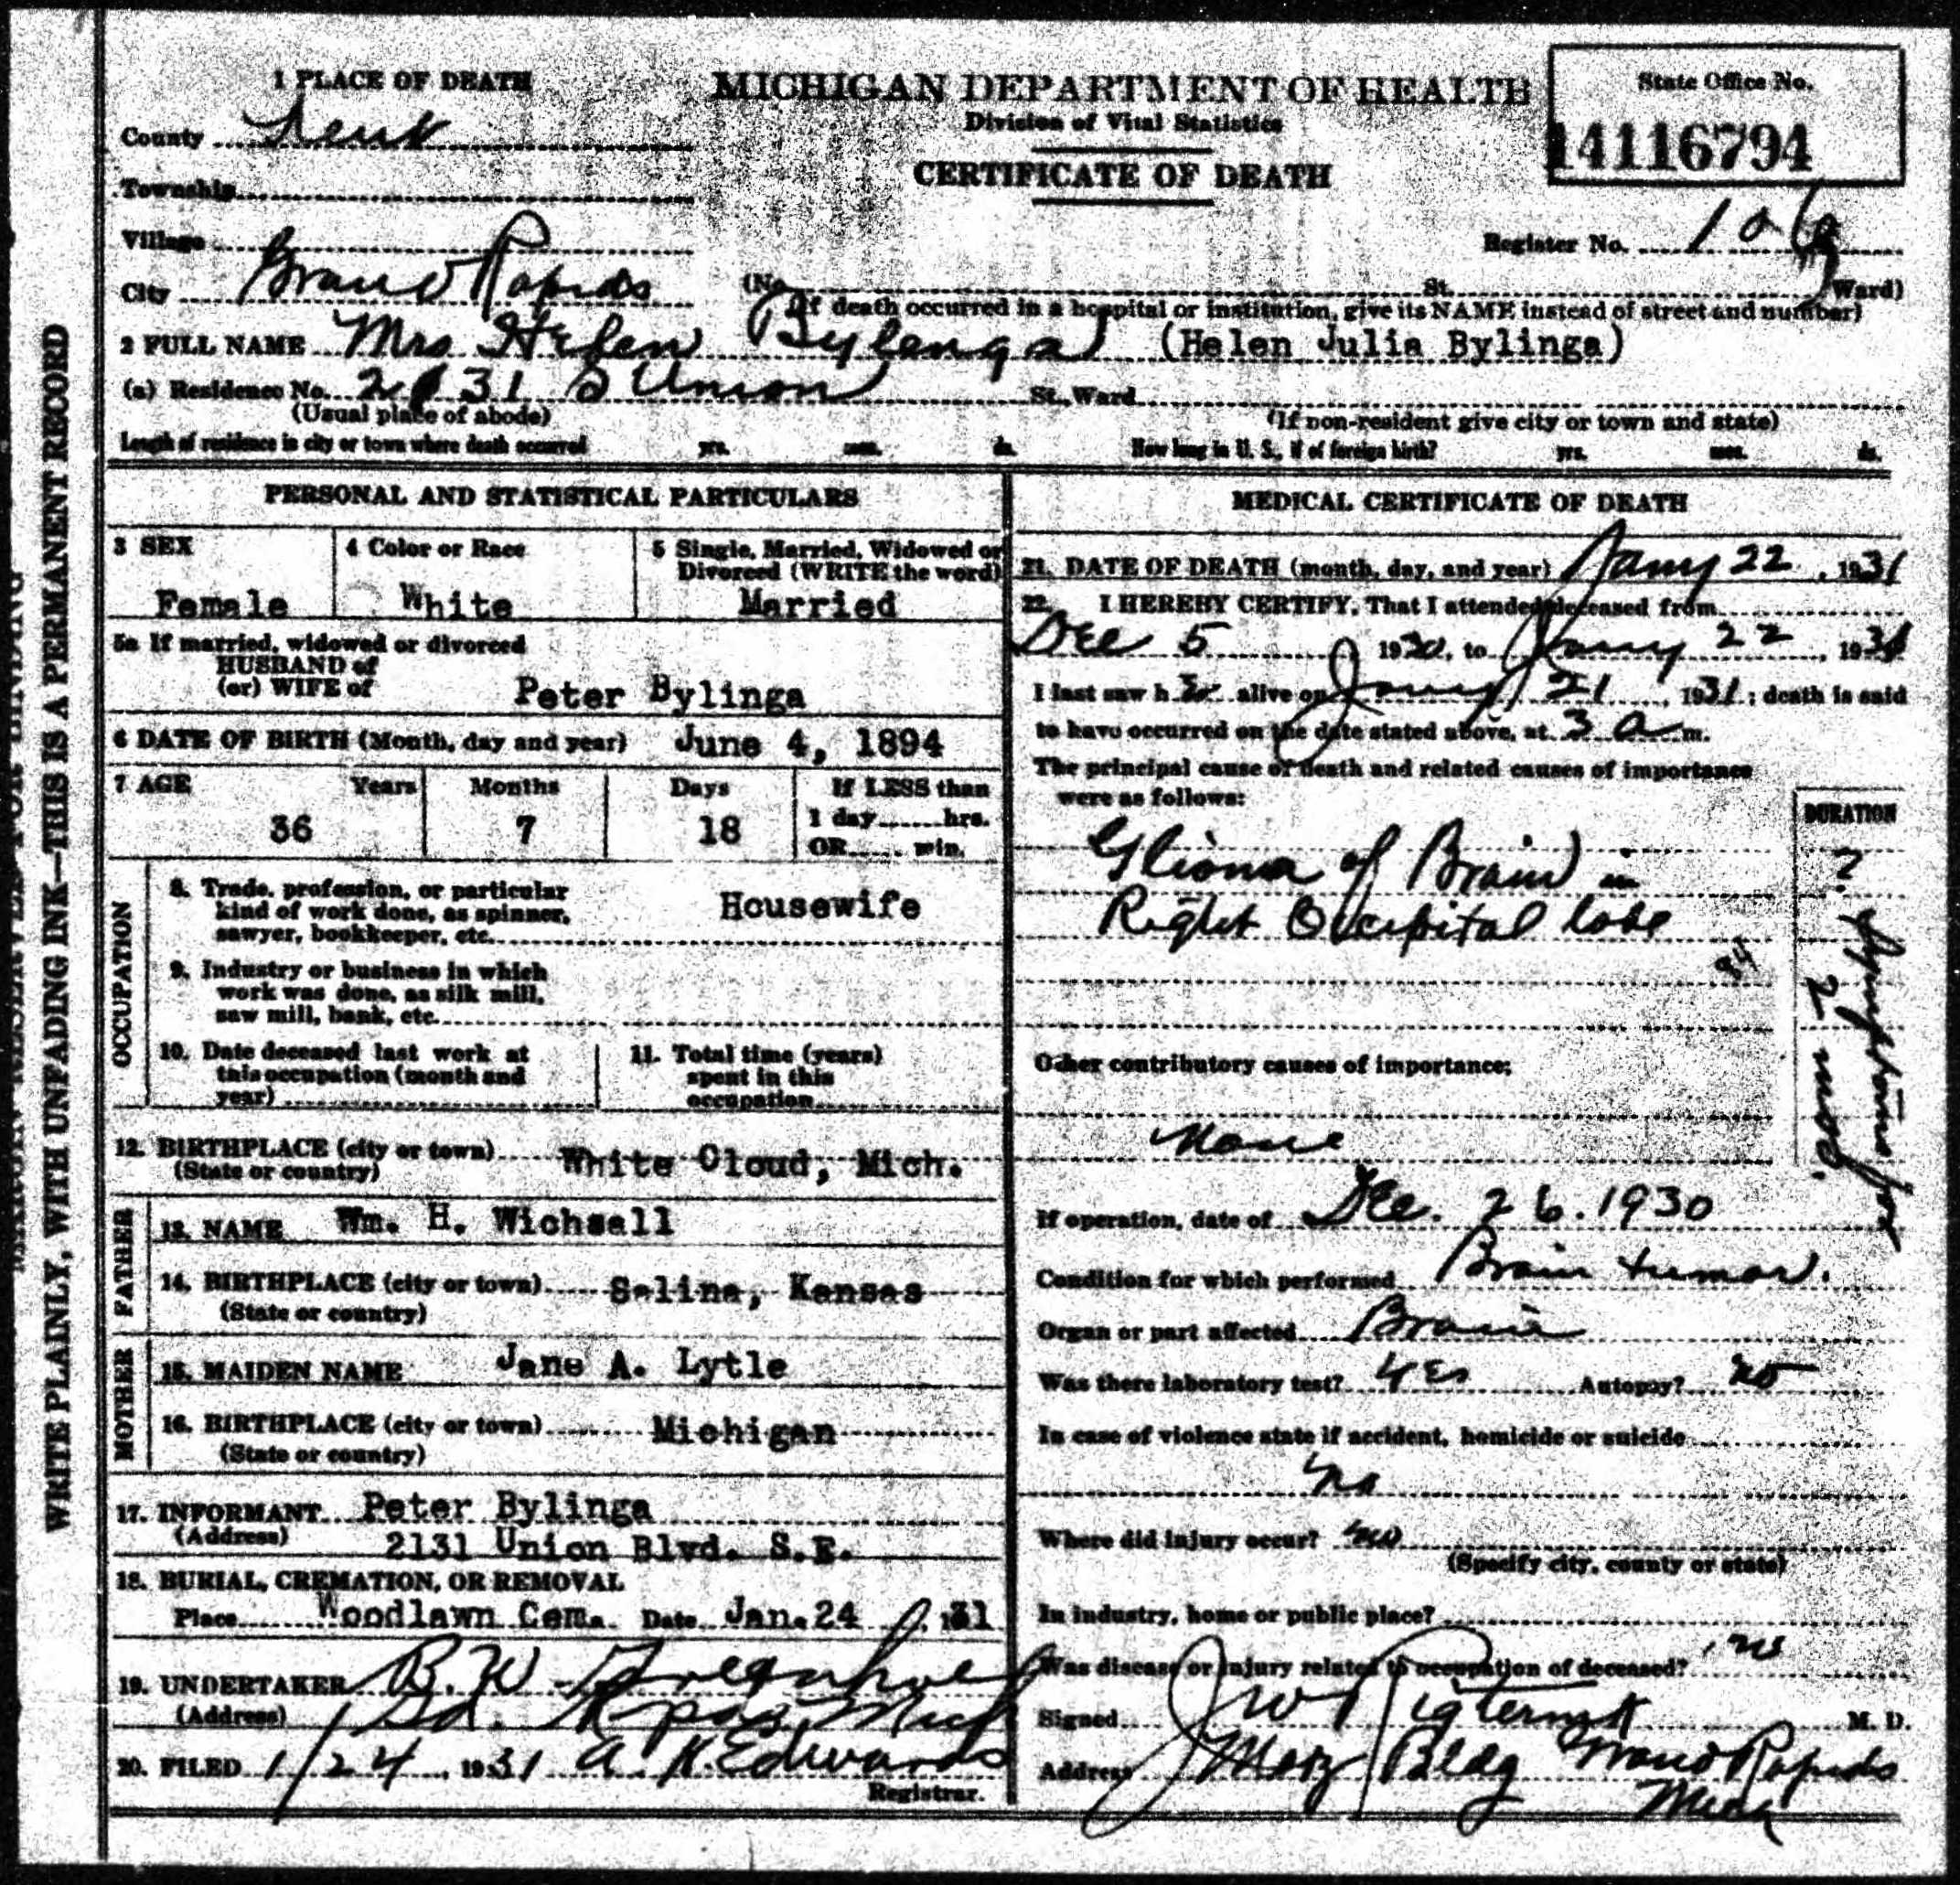 1 PLACE OF DEATH
MICHIGAN DEPARTMENT OF HEALTH
Division of Vital Statistics
CERTIFICATE OF DEATH
State Office No.
14116794
County Kent
Township
Village
Register No. 106
City Grand Rapids (No. St. Ward)
(If death occurred in a hospital or institution, give its NAME instead of street and number)
2 FULL NAME Mrs Helen Bylenga (Helen Julia Bylinga)
(a) Residence No. 2131 S Union St., Ward
(Usual place of abode) (If non-resident give city or town and state)
Length of residence in city or town where death occurred yrs. mos. ds. How long in U. S., if of foreign birth? yrs. mos. ds.
WRITE PLAINLY, WITH UNFADING INK—THIS IS A PERMANENT RECORD
PERSONAL AND STATISTICAL PARTICULARS
3 SEX
Female
4 Color or Race
White
5 Single, Married, Widowed or
Divorced (WRITE the word)
Married
5a If married, widowed or divorced
HUSBAND of
(or) WIFE of Peter Bylinga
6 DATE OF BIRTH (Month, day and year) June 4, 1894
7 AGE Years Months Days If LESS than
1 day hrs.
36 7 18
OR min.
OCCUPATION
8. Trade, profession, or particular
kind of work done, as spinner,
sawyer, bookkeeper, etc. Housewife
9. Industry or business in which
work was done, as silk mill,
saw mill, bank, etc.
10. Date deceased last work at
this occupation (month and
year)
11. Total time (years)
spent in this
occupation
12. BIRTHPLACE (city or town) White Cloud, Mich.
(State or country)
FATHER
13. NAME Wm. H. Wichsall
14. BIRTHPLACE (city or town) Salina, Kansas
(State or country)
MOTHER
15. MAIDEN NAME Jane A. Lytle
16. BIRTHPLACE (city or town) Michigan
(State or country)
17. INFORMANT Peter Bylinga
(Address) 2131 Union Blvd. S.E.
18. BURIAL, CREMATION, OR REMOVAL
Place Woodlawn Cem. Date Jan. 24, 1931
19. UNDERTAKER B.W.
(Address) Gd. Rpds, Mich
20. FILED 1/24, 1931 A. K. Edwards
Registrar.
MEDICAL CERTIFICATE OF DEATH
21. DATE OF DEATH (month, day, and year) Jany 22, 1931
22. I HEREBY CERTIFY, That I attended deceased from
Dec 5 1930, to Jany 22, 1931
I last saw her alive on Jany 21, 1931; death is said
to have occurred on the date stated above, at 3 a m.
The principal cause of death and related causes of importance
were as follows:
DURATION
Glioma of Brain in
Right Occipital lobe
?
Symptoms for
2 mos.
Other contributory causes of importance:
None
If operation, date of Dec. 26. 1930
Condition for which performed Brain tumor.
Organ or part affected Brain
Was there laboratory test? yes Autopsy? no
In case of violence state if accident, homicide or suicide
no
Where did injury occur? no
(Specify city, county or state)
In industry, home or public place?
Was disease or injury related to occupation of deceased? no
Signed J W Rigterink M. D.
Address Metz Bldg Grand Rapids
Mich